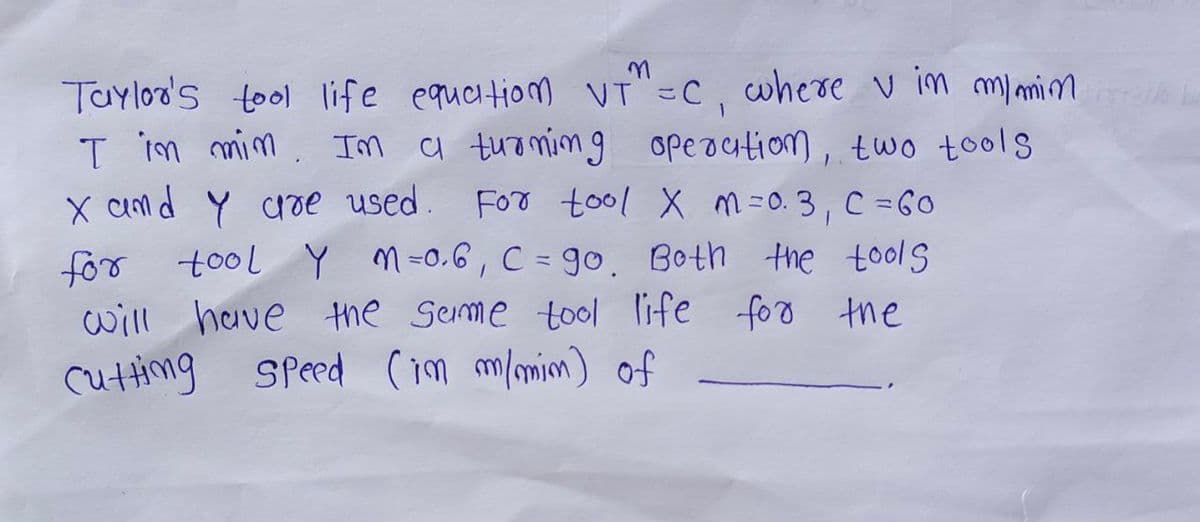 Taylor's tool life equation VT^n = C, where v in m/min
T in min. In a turning operation, two tools
X and Y are used. For tool X n=0.3, C=60
for tool Y n=0.6, C=90. Both the tools
will have the same tool life for the
cutting speed (in m/min) of ______.